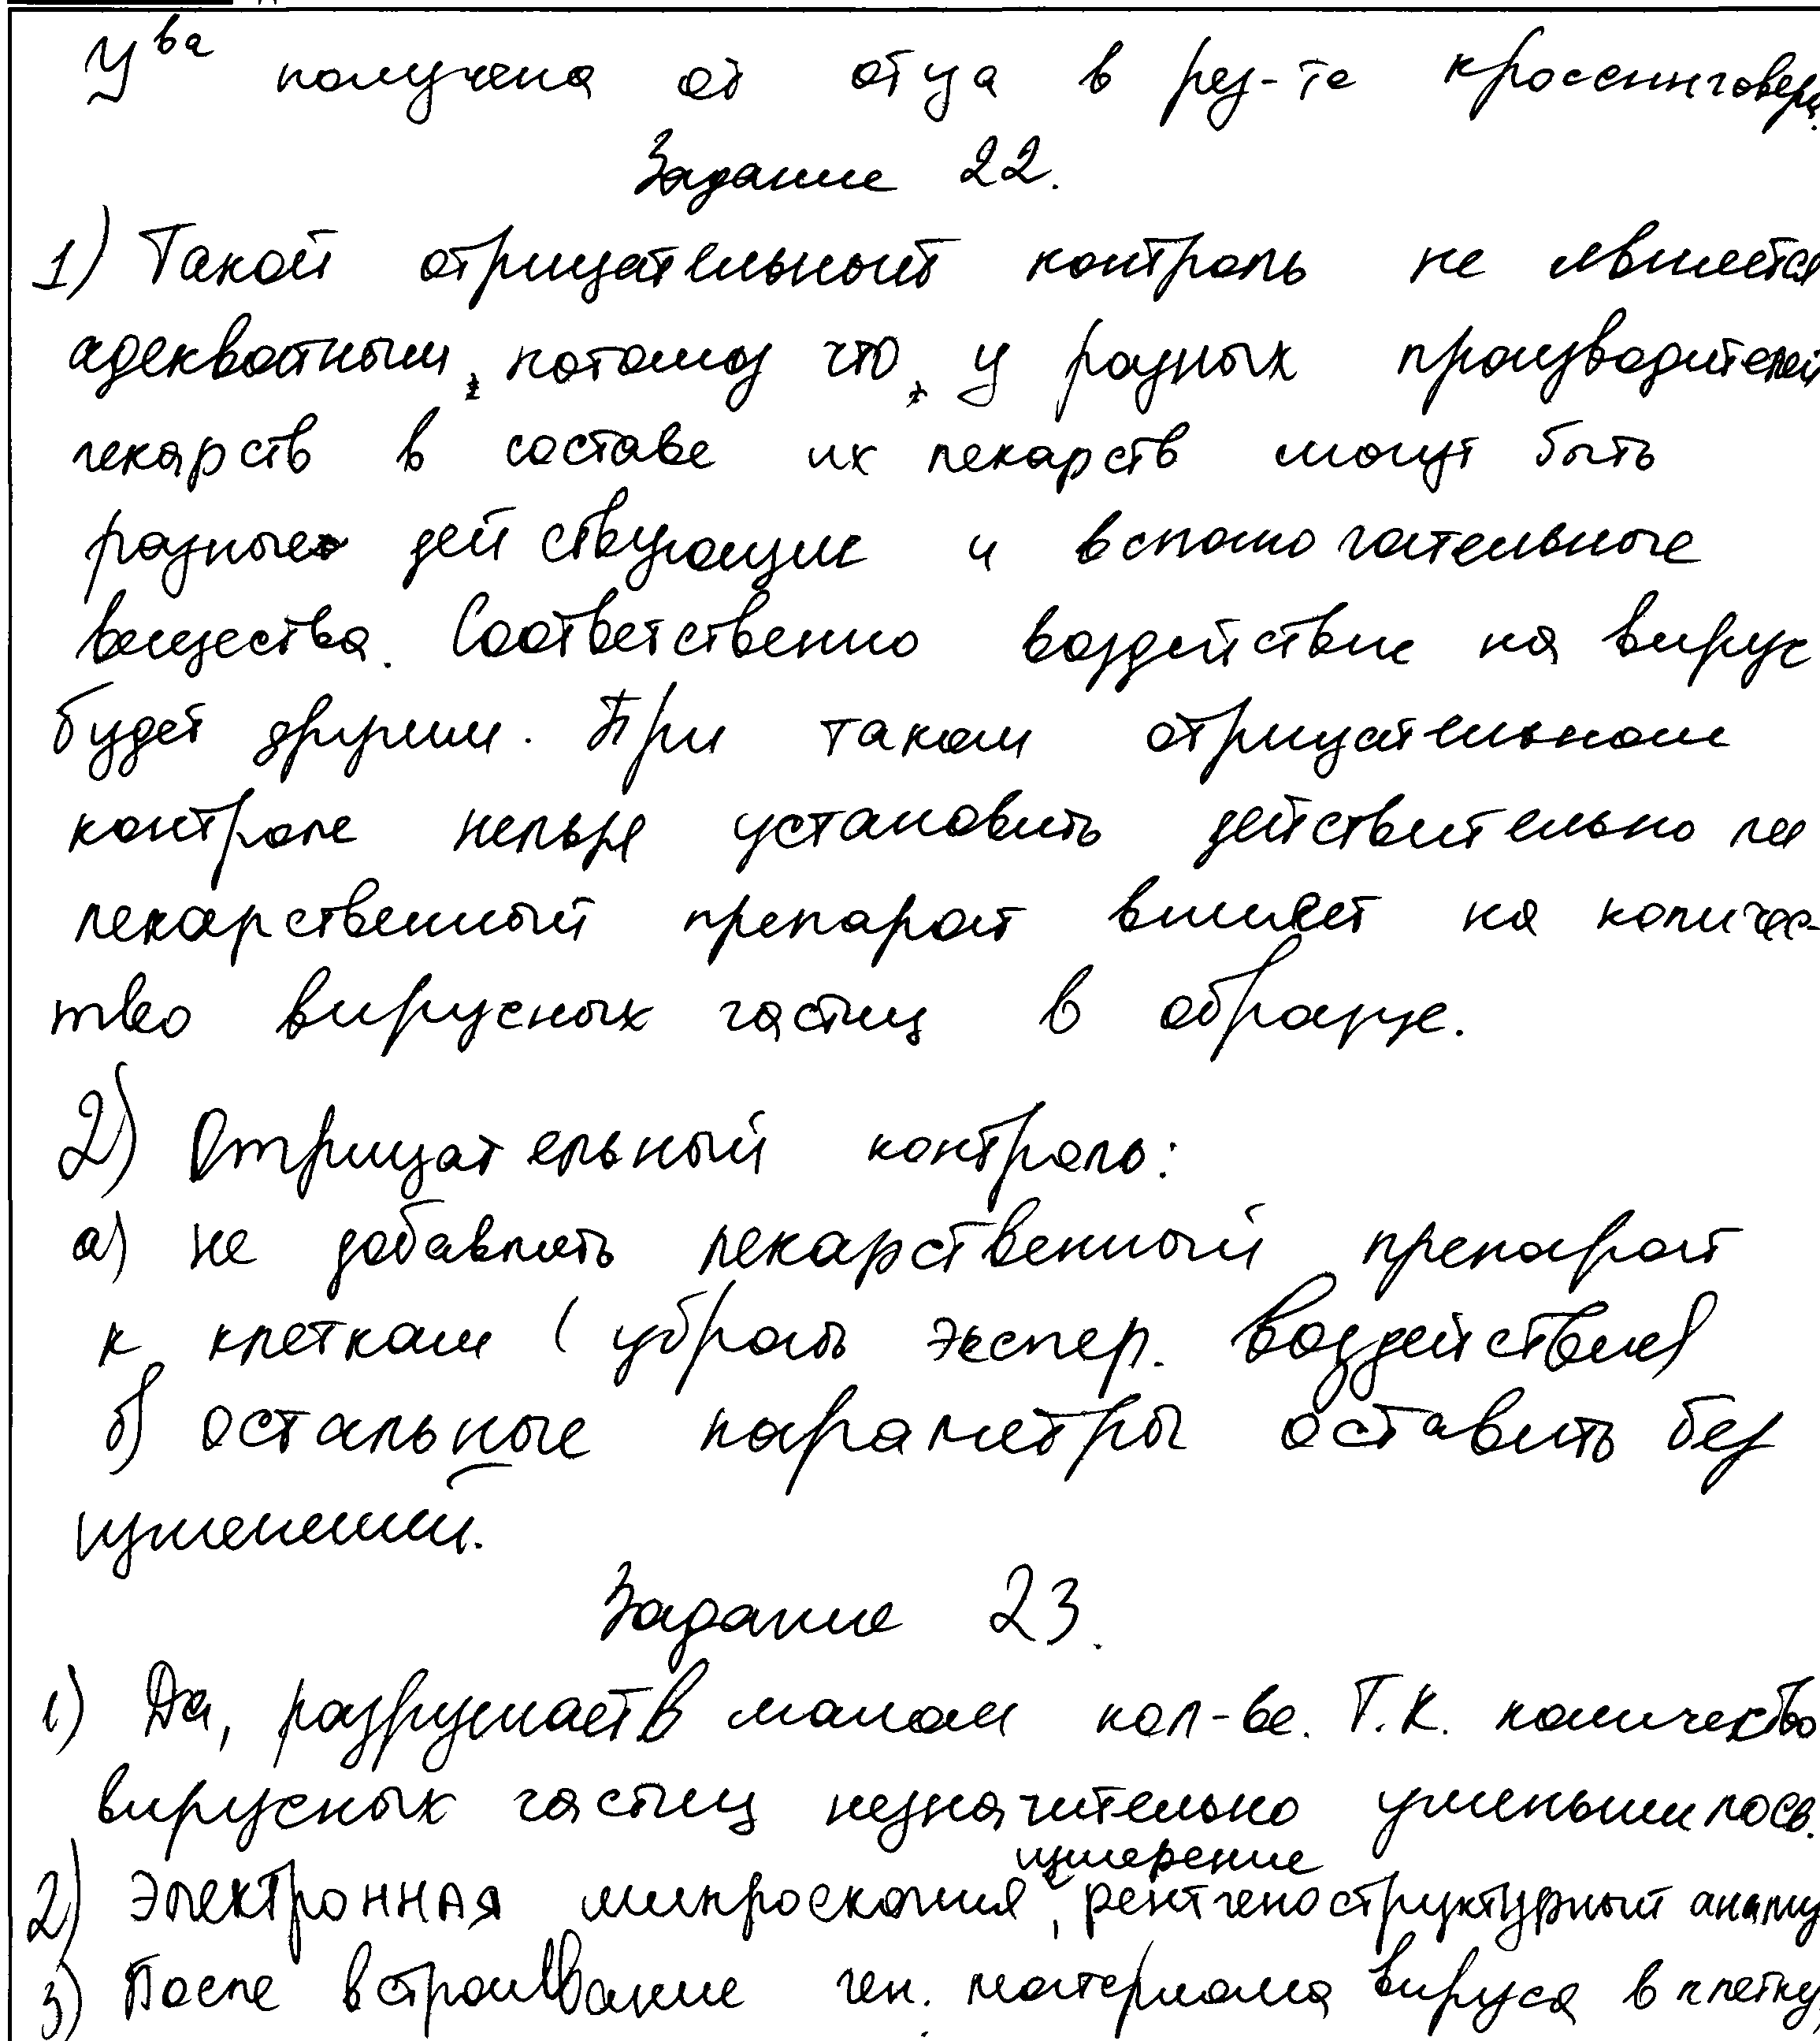 У ва получена от отца в рез-те кроссинговера.
Задание 22.
1) Такой отрицательный контроль не является
адекватным, потому что, у разных производителей
лекарств в составе их лекарств могут быть
разные действующие и вспомогательные
вещества. Соответственно воздействие на вирус
будет другим. При таком отрицательном
контроле нельзя установить действительно ли
лекарственный препарат влияет на количес-
тво вирусных частиц в образце.
2) Отрицательный контроль:
а) не добавлять лекарственный препарат
к клеткам (убрать экспер. воздействие)
б) остальные параметры оставить без
изменений.
Задание 23.
1) Да, разрушает в малом кол-ве. Т.К. количество
вирусных частиц незначительно уменьшилось.
измерение
2) Электронная микроскопия, рентгеноструктурный анализ
3) После встраивание ген. материала вируса в клетку,